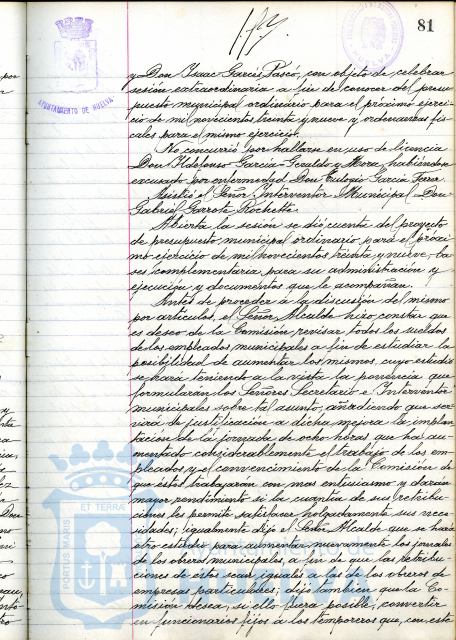 81
AYUNTAMIENTO DE HUELVA
y Don Isaac Garcés Pascó, con objeto de celebrar
sesión extraordinaria a fin de conocer del presu-
puesto municipal ordinario para el próximo ejerci-
cio de mil novecientos treinta y nueve y ordenanzas fis-
cales para el mismo ejercicio.
No concurrió por hallarse en uso de licencia
Don Ildefonso García Geraldo y Mora, habiéndose
excusado por enfermedad Don Eulogio García
Asistió el Señor Interventor Municipal Don
Gabriel Garrote Rochette.
Abierta la sesión se dió cuenta del proyecto
de presupuesto municipal ordinario para el próxi-
mo ejercicio de mil novecientos treinta y nueve, ba-
ses complementaria para su administración y
ejecución y documentos que le acompañan.
Antes de proceder á la discusión del mismo
por artículos, el Señor Alcalde hizo constar que
es deseo de la Comisión revisar todos los sueldos
de los empleados municipales a fin de estudiar la
posibilidad de aumentar los mismos, cuyo estudio
se hará teniendo a la vista la ponencia que
formularán los Señores Secretario e Interventor
municipales sobre tal asunto, añadiendo que ser-
virá de justificación a dicha mejora la implan-
tación de la jornada de ocho horas que ha au-
mentado considerablemente el trabajo de los em-
pleados y el convencimiento de la Comisión de
que éstos trabajarán con mas entusiasmo y darán
mayor rendimiento si la cuantía de sus retribu-
ciones les permite satisfacer holgadamente sus nece-
sidades; igualmente dijo el Señor Alcalde que se hará
otro estudio para aumentar nuevamente los jornales
de los obreros municipales, a fin de que las retribu-
ciones de estos sean iguales a las de los obreros de
empresas particulares; dijo tambien que la Co-
misión desea, si ello fuera posible, convertir
en funcionarios fijos á los temporeros que, con este
PORTUS MARIS ET TERRAE
Ayuntamiento de